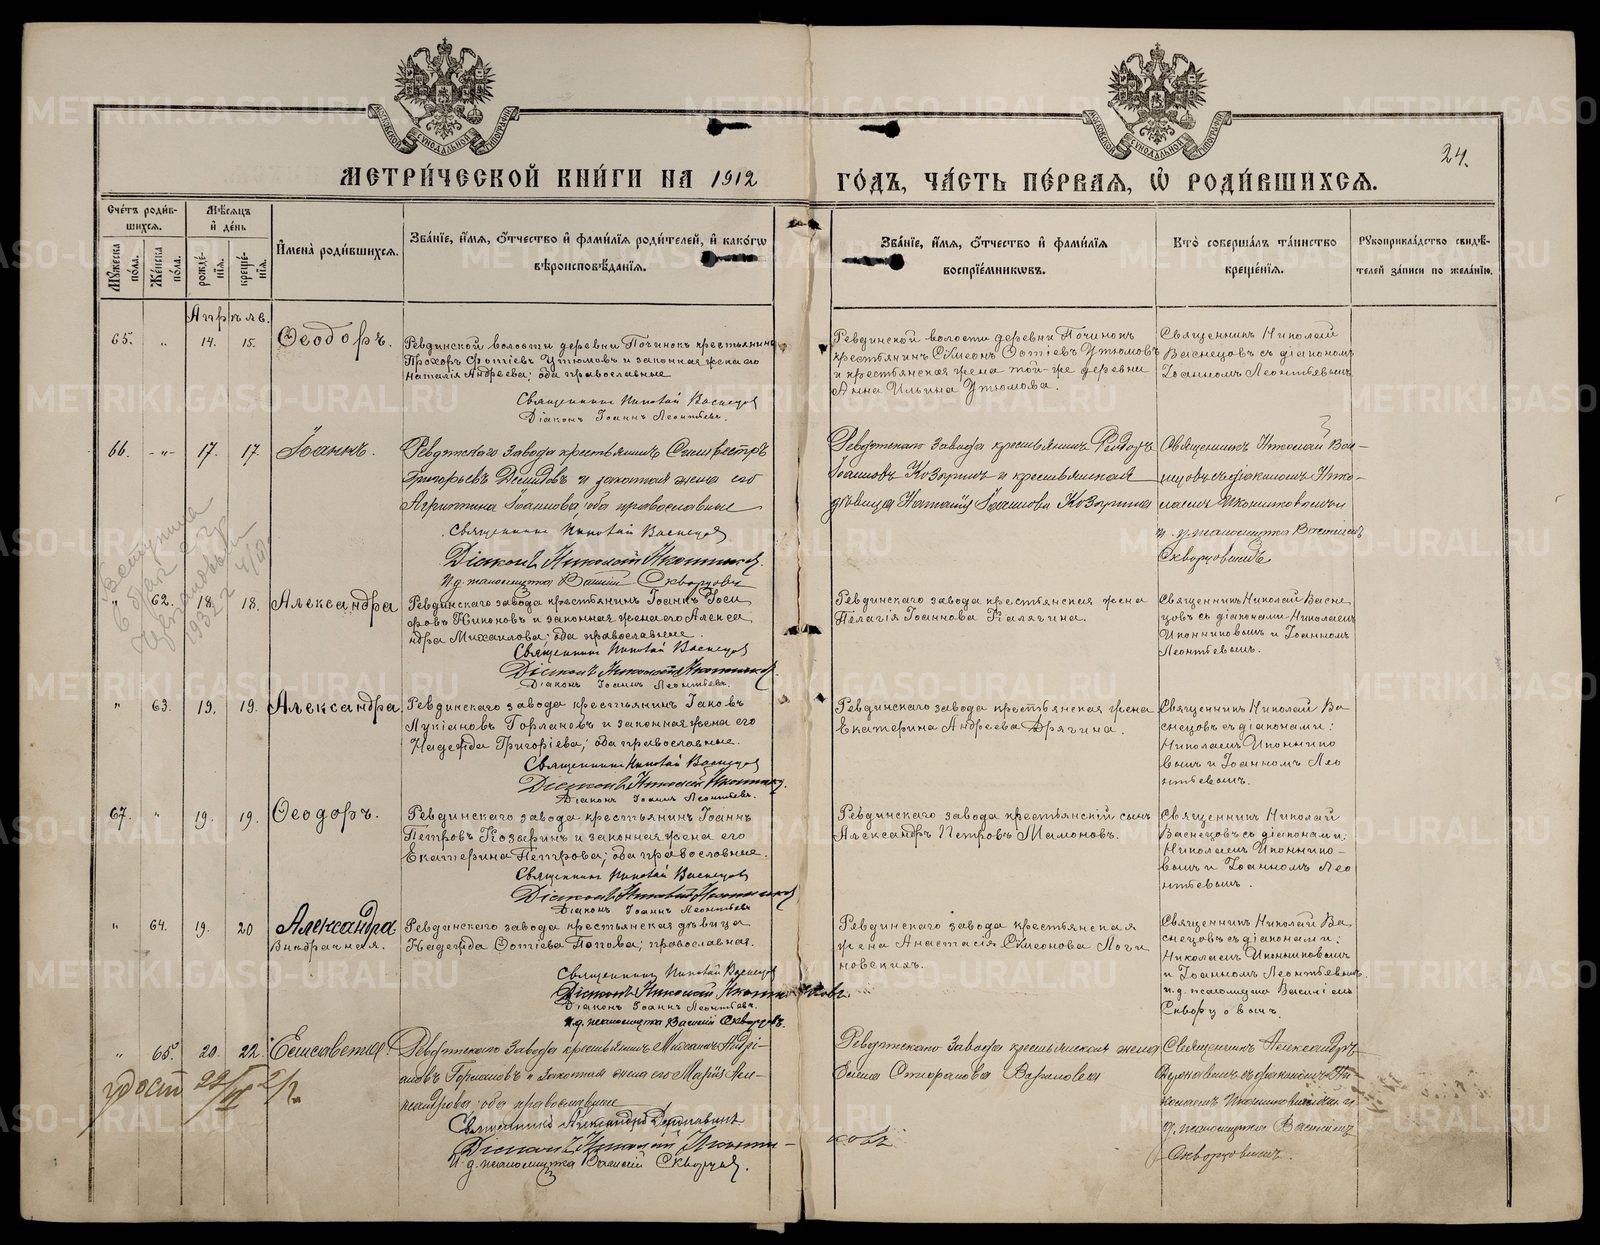 МЕТРИ́ЧЕСКОЙ КНИ́ГИ НА 1912
ГО́ДЪ, ЧА́СТЬ ПЕ́РВАЯ, Ѡ҆ РОДИ́ВШИХСЯ.
24.
Сче́тъ роди́в-
шихся.
Мѣ́сяцъ
и҆ де́нь
И҆мена̀ роди́вшихся.
Зва́нїе, и҆́мя, ѻ҆́тчество и҆ фами́лїя роди́телей, и҆ како́гѡ
вѣроисповѣ́данїя.
Мꙋ́жеска
по́ла.
Же́нска
по́ла.
рожде́-
нїя.
креще́-
нїя.
Зва́нїе, и҆́мя, ѻ҆́тчество и҆ фами́лїя
воспрїе́мниковъ.
Кто̀ соверша́лъ та́инство
креще́нїя.
Рꙋкоприкла́дство свидѣ́-
телей за́писи по жела́нїю.
Апрѣль.
65. " 14. 15. Ѳеодоръ.
Ревдинской волости деревни Починокъ крестьянинъ
Прохоръ Фотіевъ Утюмовъ и законная жена его
Наталія Андреева; оба православные
Священникъ Николай Васнецовъ
Діаконъ Іоаннъ Леонтьевъ.
Ревдинской волости деревни Починокъ
крестьянинъ Симеонъ Фотіевъ Утюмовъ
и крестьянская жена той-же деревни
Анна Ильина Утюмова.
Священникъ Николай
Васнецовъ съ діакономъ
Іоанномъ Леонтьевымъ
66. -"- 17. 17. Іоаннъ.
Ревдинскаго завода крестьянинъ Сильвестръ
Григорьевъ Демидовъ и законная жена его
Агриппина Іоаннова, оба православные
Священникъ Николай Васнецовъ
Діаконъ Николай Иконниковъ.
И.д. псаломщика Василій Скворцовъ
Ревдинскаго завода крестьянинъ Ѳеодоръ
Іоанновъ Козыринъ и крестьянская
дѣвица Наталія Іоаннова Козырина
Священникъ Николай Вас-
нецовъ съ діакономъ Нико-
лаемъ Иконниковымъ
и и.д. псаломщика Василіемъ
Скворцовымъ
Вступила
въ бракъ с гр
1932 г.
" 62. 18. 18. Александра
Ревдинскаго завода крестьянинъ Іоаннъ Іоси
фовъ Никоновъ и законная жена его Алекса
ндра Михаилова; оба православные.
Священникъ Николай Васнецовъ
Діаконъ Николай Иконниковъ.
Діаконъ Іоаннъ Леонтьевъ.
Ревдинскаго завода крестьянская жена
Пелагія Іоаннова Калягина.
Священникъ Николай Васне
цовъ съ діаконами Николаемъ
Иконниковымъ и Іоанномъ
Леонтьевымъ.
" 63. 19. 19. Александра.
Ревдинскаго завода крестьянинъ Іаковъ
Лукіановъ Горлановъ и законная жена его
Надежда Григоріева; оба православные.
Священникъ Николай Васнецовъ
Діаконъ Николай Иконниковъ.
Діаконъ Іоаннъ Леонтьевъ.
Ревдинскаго завода крестьянская жена
Екатерина Андреева Дрягина.
Священникъ Николай Ва
снецовъ съ діаконами:
Николаемъ Иконнико
вымъ и Іоанномъ Лео
нтьевымъ.
67. " 19. 19. Ѳеодоръ.
Ревдинскаго завода крестьянинъ Іоаннъ
Петровъ Козыринъ и законная жена его
Екатерина Петрова; оба православные.
Священникъ Николай Васнецовъ
Діаконъ Николай Иконниковъ
Діаконъ Іоаннъ Леонтьевъ
Ревдинскаго завода крестьянскій сынъ
Александръ Петровъ Мамоновъ.
Священникъ Николай
Васнецовъ съ діаконами:
Николаемъ Иконнико-
вымъ и Іоанномъ Лео
нтьевымъ.
" 64. 19. 20 Александра
Внѣбрачная.
Ревдинскаго завода крестьянская дѣвица
Надежда Фотіева Попова; православная.
Священникъ Николай Васнецовъ
Діаконъ Николай Иконниковъ.
Діаконъ Іоаннъ Леонтьевъ.
И.д. псаломщика Василій Скворцовъ.
Ревдинскаго завода крестьянская
жена Анастасія Симеонова Логи
новскихъ.
Священникъ Николай Ва
снецовъ съ діаконами:
Николаемъ Иконниковымъ
и Іоанномъ Леонтьевымъ.
и.д. псаломщика Василіемъ
Скворцовымъ.
" 65. 20. 22. Елисавета.
Ревдинскаго завода крестьянинъ Михаилъ Андрі-
ановъ Горлановъ и законная жена его Марія Але-
ксандрова, оба православные
Священникъ Александръ Державинъ
Діаконъ Николай Иконни-
ковъ
И.д. псаломщика Василій Скворцовъ.
Ревдинскаго завода крестьянская жена
Священникъ Александръ
Державинъ съ діакономъ Ни-
колаемъ Иконниковымъ и
и.д. псаломщика Василіемъ
Скворцовымъ.
METRIKI.GASO-URAL.RU